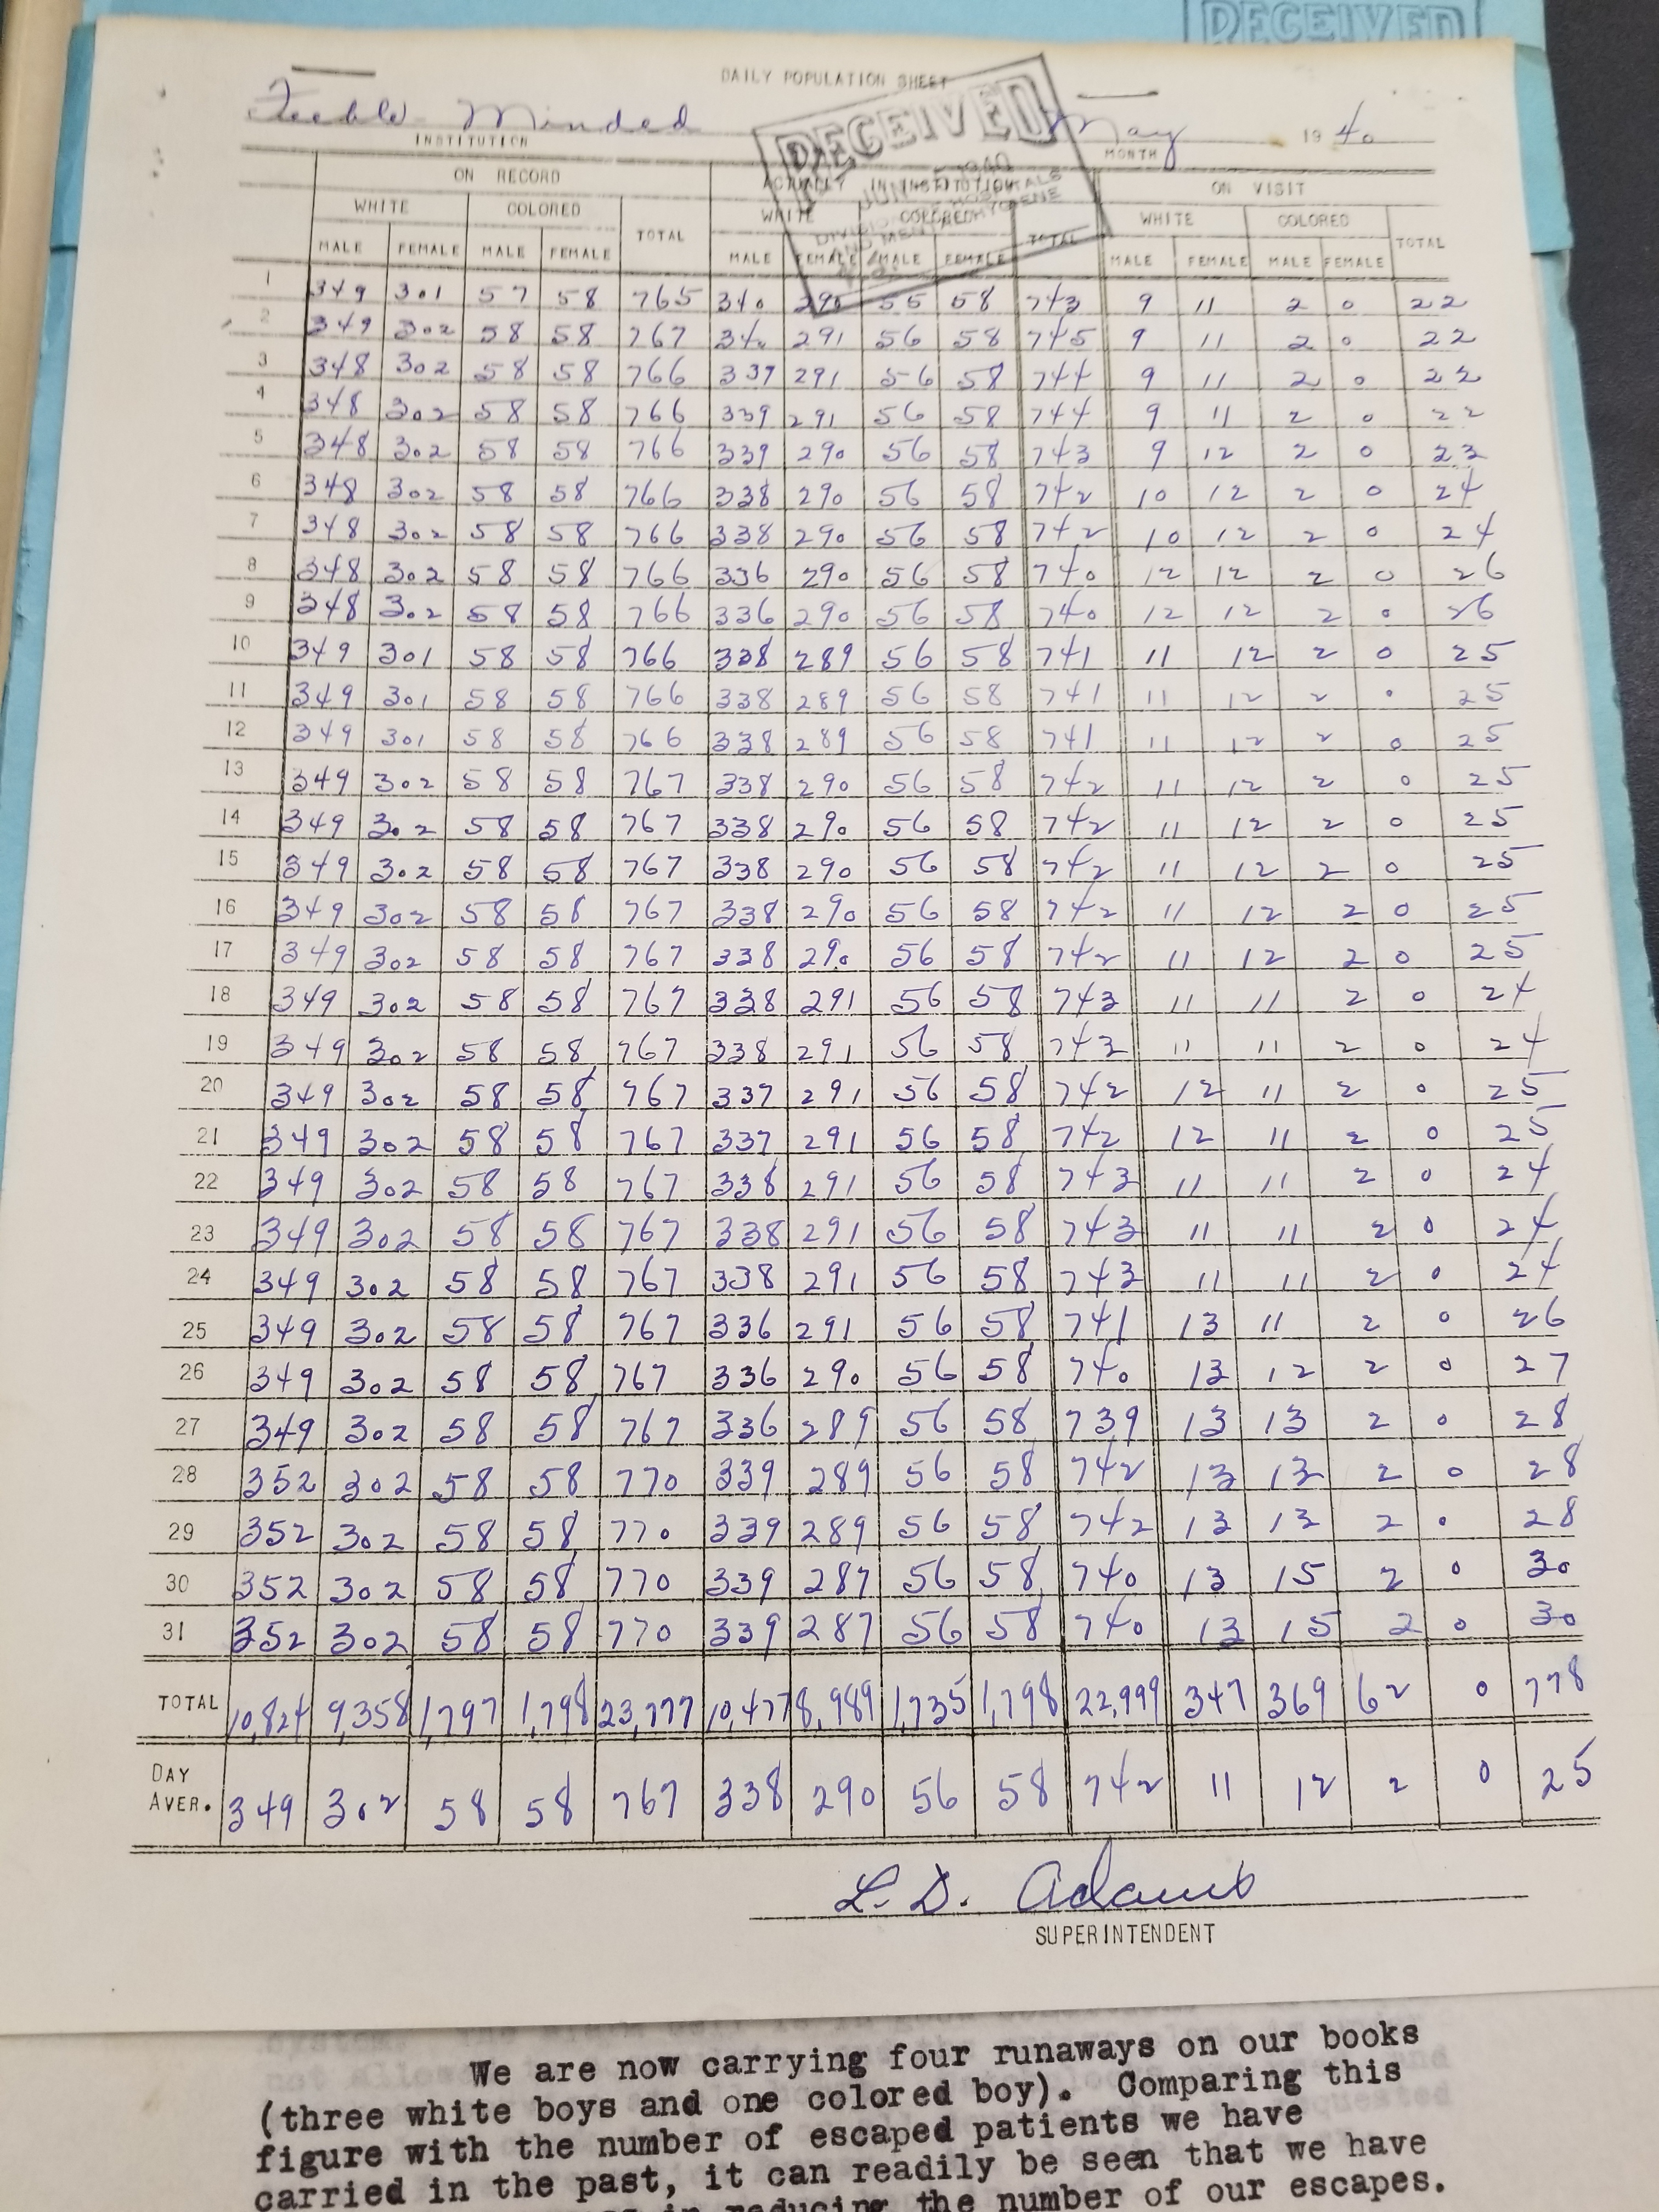 RECEIVED
DAILY POPULATION SHEET
Feeble-Minded May 1940
INSTITUTION MONTH
RECEIVED
JUN 1940
DIVISION OF HOSPITALS
AND MENTAL HYGIENE
ON RECORD ACTUALLY IN INSTITUTION ON VISIT
WHITE COLORED TOTAL WHITE COLORED TOTAL WHITE COLORED TOTAL
MALE FEMALE MALE FEMALE MALE FEMALE MALE FEMALE MALE FEMALE MALE FEMALE
1 349 301 57 58 765 340 290 55 58 743 9 11 2 0 22
2 349 302 58 58 767 340 291 56 58 745 9 11 2 0 22
3 348 302 58 58 766 339 291 56 58 744 9 11 2 0 22
4 348 302 58 58 766 339 291 56 58 744 9 11 2 0 22
5 348 302 58 58 766 339 290 56 58 743 9 12 2 0 23
6 348 302 58 58 766 338 290 56 58 742 10 12 2 0 24
7 348 302 58 58 766 338 290 56 58 742 10 12 2 0 24
8 348 302 58 58 766 336 290 56 58 740 12 12 2 0 26
9 348 302 58 58 766 336 290 56 58 740 12 12 2 0 26
10 349 301 58 58 766 338 289 56 58 741 11 12 2 0 25
11 349 301 58 58 766 338 289 56 58 741 11 12 2 0 25
12 349 301 58 58 766 338 289 56 58 741 11 12 2 0 25
13 349 302 58 58 767 338 290 56 58 742 11 12 2 0 25
14 349 302 58 58 767 338 290 56 58 742 11 12 2 0 25
15 349 302 58 58 767 338 290 56 58 742 11 12 2 0 25
16 349 302 58 58 767 338 290 56 58 742 11 12 2 0 25
17 349 302 58 58 767 338 290 56 58 742 11 12 2 0 25
18 349 302 58 58 767 338 291 56 58 743 11 11 2 0 24
19 349 302 58 58 767 338 291 56 58 743 11 11 2 0 24
20 349 302 58 58 767 337 291 56 58 742 12 11 2 0 25
21 349 302 58 58 767 337 291 56 58 742 12 11 2 0 25
22 349 302 58 58 767 338 291 56 58 743 11 11 2 0 24
23 349 302 58 58 767 338 291 56 58 743 11 11 2 0 24
24 349 302 58 58 767 338 291 56 58 743 11 11 2 0 24
25 349 302 58 58 767 336 291 56 58 741 13 11 2 0 26
26 349 302 58 58 767 336 290 56 58 740 13 12 2 0 27
27 349 302 58 58 767 336 289 56 58 739 13 13 2 0 28
28 352 302 58 58 770 339 289 56 58 742 13 13 2 0 28
29 352 302 58 58 770 339 289 56 58 742 13 13 2 0 28
30 352 302 58 58 770 339 287 56 58 740 13 15 2 0 30
31 352 302 58 58 770 339 287 56 58 740 13 15 2 0 30
TOTAL 10,824 9,358 1,797 1,798 23,777 10,477 8,989 1,735 1,798 22,999 347 369 62 0 778
DAY
AVER. 349 302 58 58 767 338 290 56 58 742 11 12 2 0 25
L. D. Adams
SUPERINTENDENT
system.
We are now carrying four runaways on our books
(three white boys and one colored boy). Comparing this
figure with the number of escaped patients we have
carried in the past, it can readily be seen that we have
in reducing the number of our escapes.